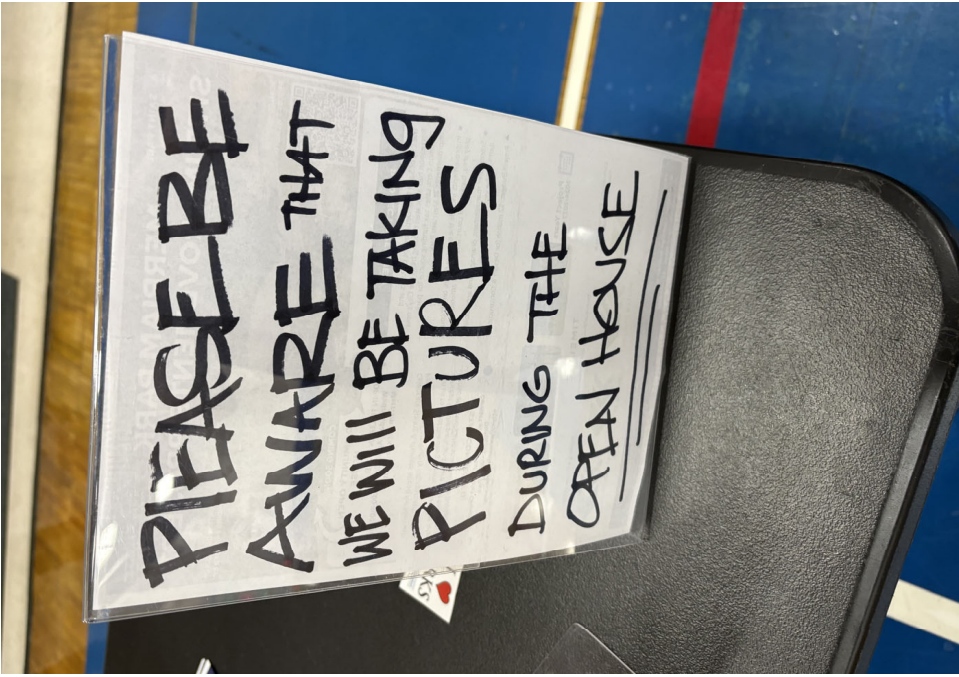 PlEASE BE
AWARE THAT
WE WIll BE TAKING
PICTURES
DURING THE
OPEN HOUSE